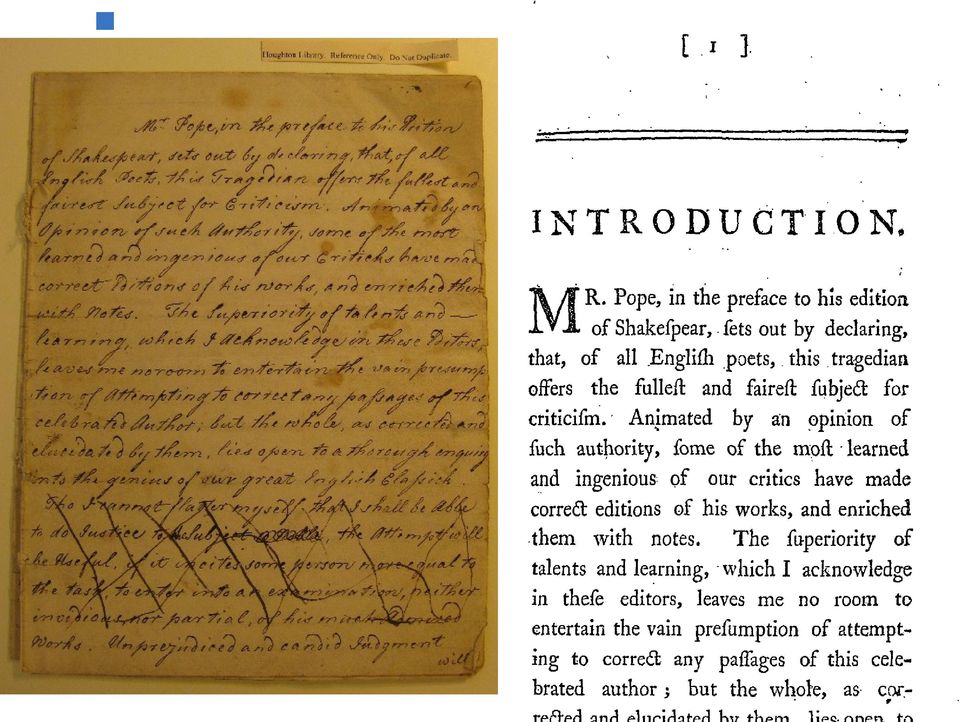 Houghton Library. Reference Only. Do Not Duplicate.
Mr Pope, in the preface to his Edition
of Shakespear, sets out by declaring, that, of all
English Poets, this Tragedian offers the fullest and
fairest Subject for Criticism. Animated by an
Opinion of such Authority, some of the most
learned and ingenious of our Criticks have made
correct Editions of his works, and enriched them
with Notes. The Superiority of talents and —
learning, which I Acknowledge in these Editors,
leaves me no room to entertain the vain presump
tion of Attempting to correct any passages of this
celebrated Author; but the whole, as corrected and
elucidated by them, lies open to a thorough enquiry
into the genius of our great English Classick.
Tho I cannot flatter myself that I shall be Able
to do Justice to Subject, the Attempt will
be Useful, if it incites some person more equal to
the task, to enter into an examination, neither
invidious, nor partial, of his much Admired
Works. Unprejudiced and candid Judgment
will
[ 1 ]
INTRODUCTION.
MR. Pope, in the preface to his edition
of Shakeſpear, ſets out by declaring,
that, of all Engliſh poets, this tragedian
offers the fulleſt and faireſt ſubject for
criticiſm. Animated by an opinion of
ſuch authority, ſome of the moſt learned
and ingenious of our critics have made
correct editions of his works, and enriched
them with notes. The ſuperiority of
talents and learning, which I acknowledge
in theſe editors, leaves me no room to
entertain the vain preſumption of attempt-
ing to correct any paſſages of this cele-
brated author; but the whole, as cor-
rected and elucidated by them, lies open to